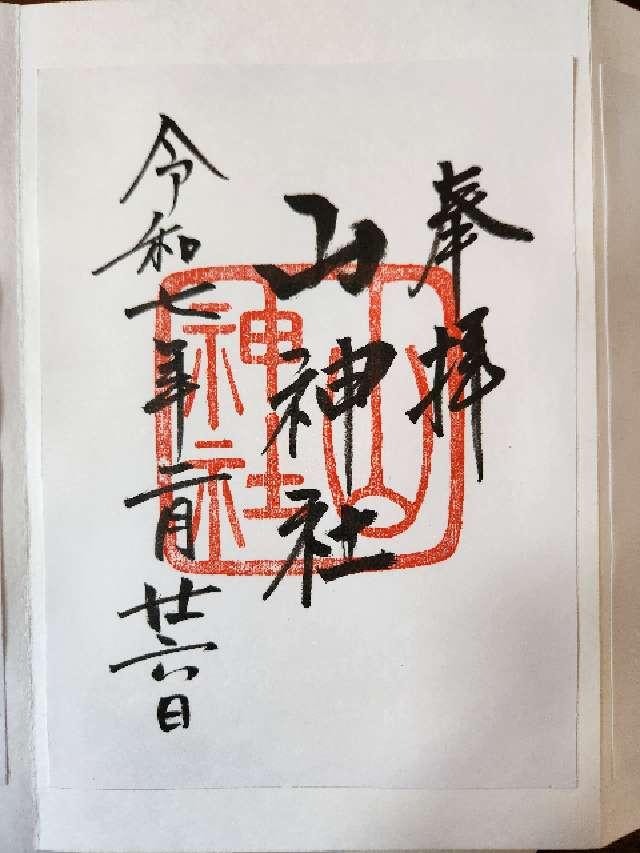 奉拝
山神社
令和七年二月廿六日
山神社